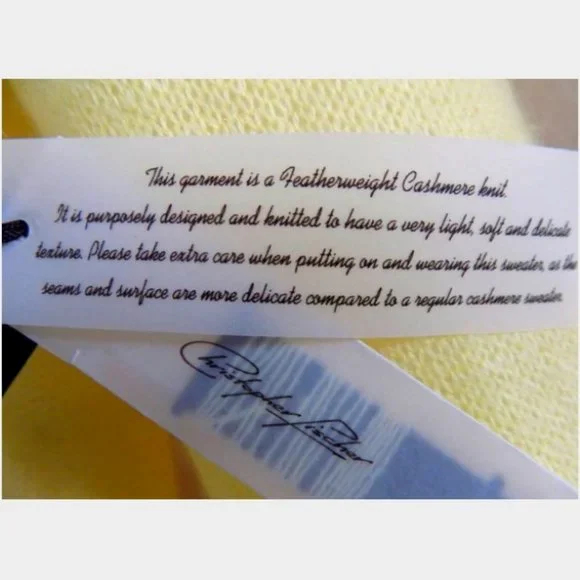 This garment is a Featherweight Cashmere knit.
It is purposely designed and knitted to have a very light, soft and delicate
texture. Please take extra care when putting on and wearing this sweater, as the
seams and surface are more delicate compared to a regular cashmere sweater.
Christopher Fischer